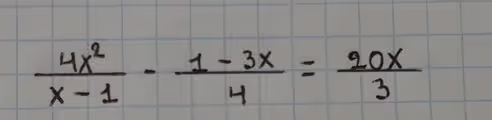 4x²/(x - 1) - (1 - 3x)/4 = 20x/3